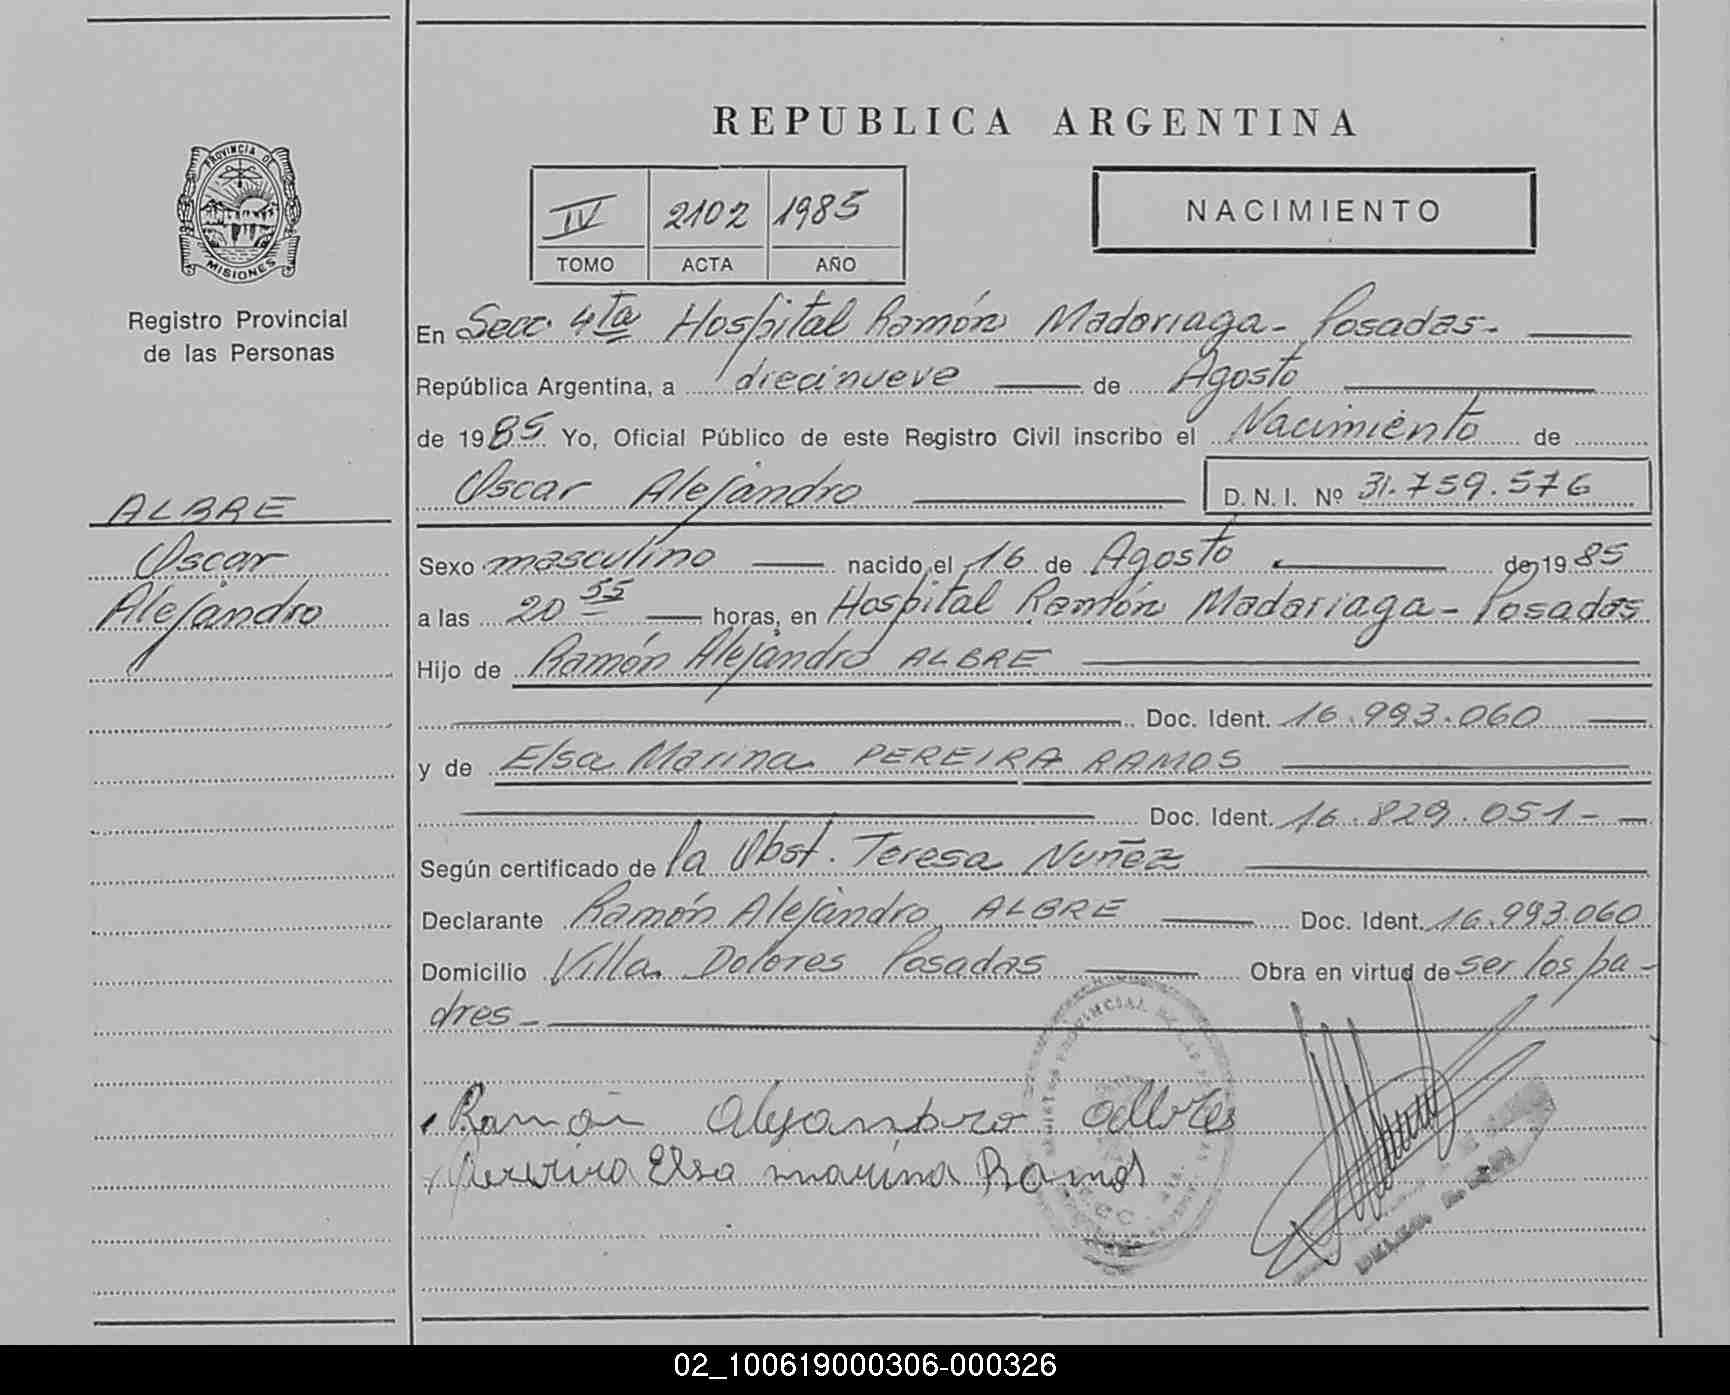 REPUBLICA ARGENTINA
PROVINCIA DE
MISIONES
Registro Provincial
de las Personas
IV 2102 1985
TOMO ACTA AÑO
NACIMIENTO
En Secc. 4ta Hospital Ramón Madariaga - Posadas -
República Argentina, a diecinueve de Agosto
de 1985 Yo, Oficial Público de este Registro Civil inscribo el Nacimiento de
Oscar Alejandro D. N. I. Nº 31.759.576
ALBRE
Oscar
Alejandro
Sexo masculino nacido el 16 de Agosto de 1985
a las 20 55 horas, en Hospital Ramón Madariaga - Posadas
Hijo de Ramón Alejandro ALBRE
Doc. Ident. 16.993.060
y de Elsa Marina PEREIRA RAMOS
Doc. Ident. 16.829.051 -
Según certificado de la Obst. Teresa Nuñez
Declarante Ramón Alejandro ALBRE Doc. Ident. 16.993.060
Domicilio Villa Dolores Posadas Obra en virtud de ser los pa-
dres -
Ramón Alejandro Albre
Pereira Elsa marina Ramos
02_100619000306-000326